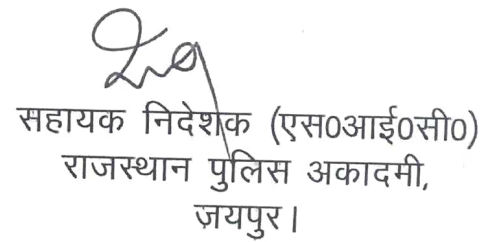 सहायक निदेशक (एस0आई0सी0)
राजस्थान पुलिस अकादमी,
जयपुर।